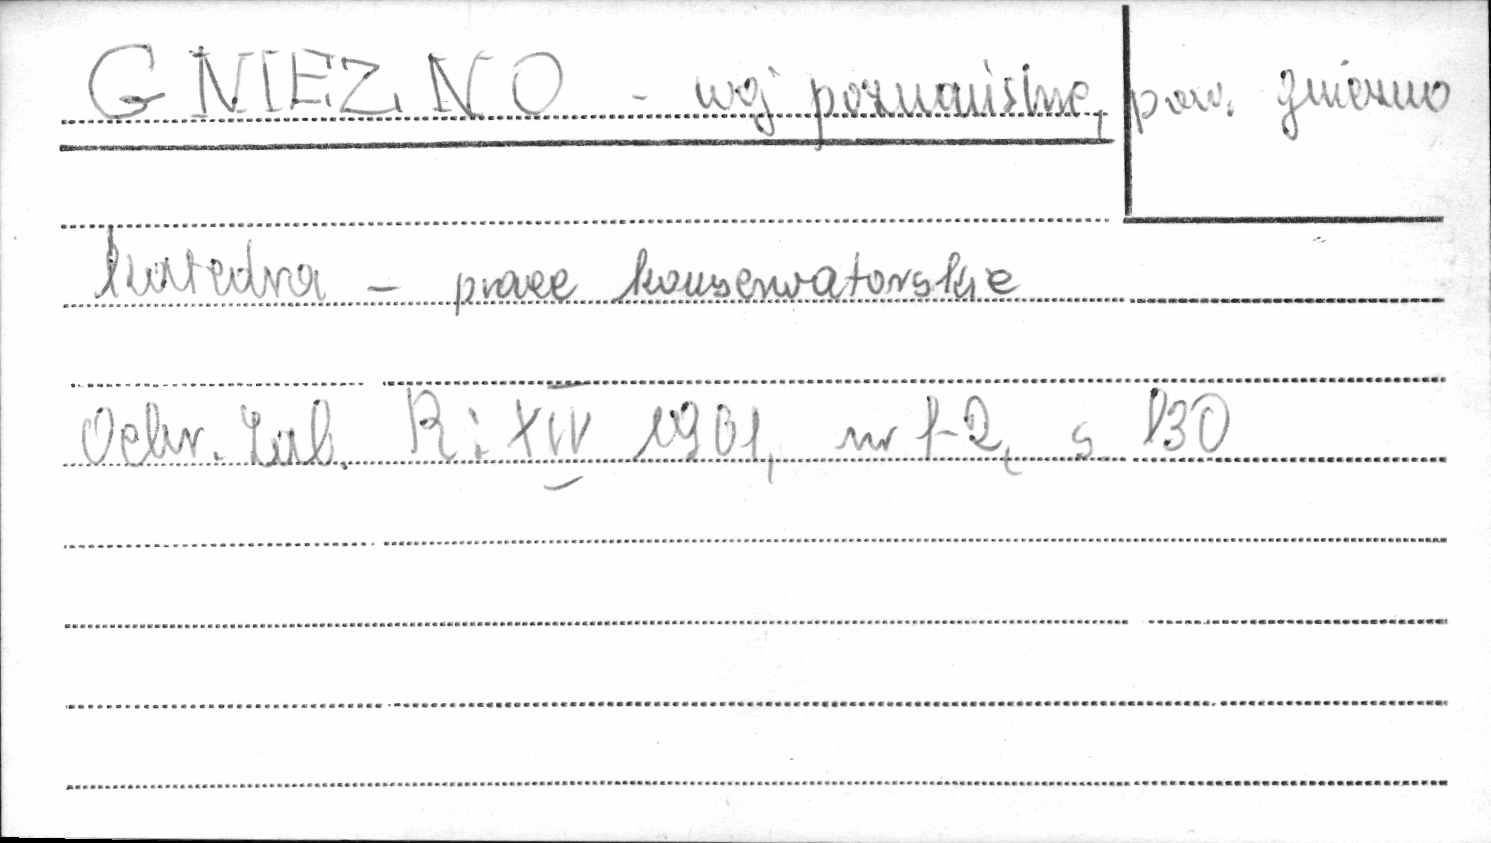 GNIEZNO - woj poznańskie, pow. gniezno
katedra - prace konserwatorskie
Ochr. Zab. R: XIV 1961, nr 1-2, s 130